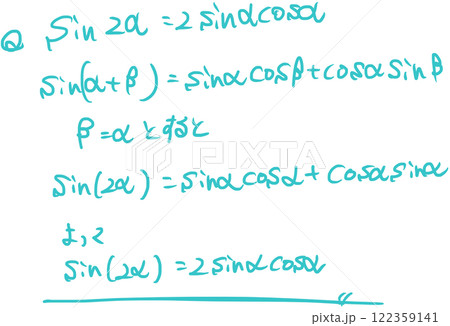 ② sin2α=2sinαcosα
sin(α+β)=sinαcosβ+cosαsinβ
β=αとすると
sin(2α)=sinαcosα+cosαsinα
よって
sin(2α)=2sinαcosα
PIXTA
122359141